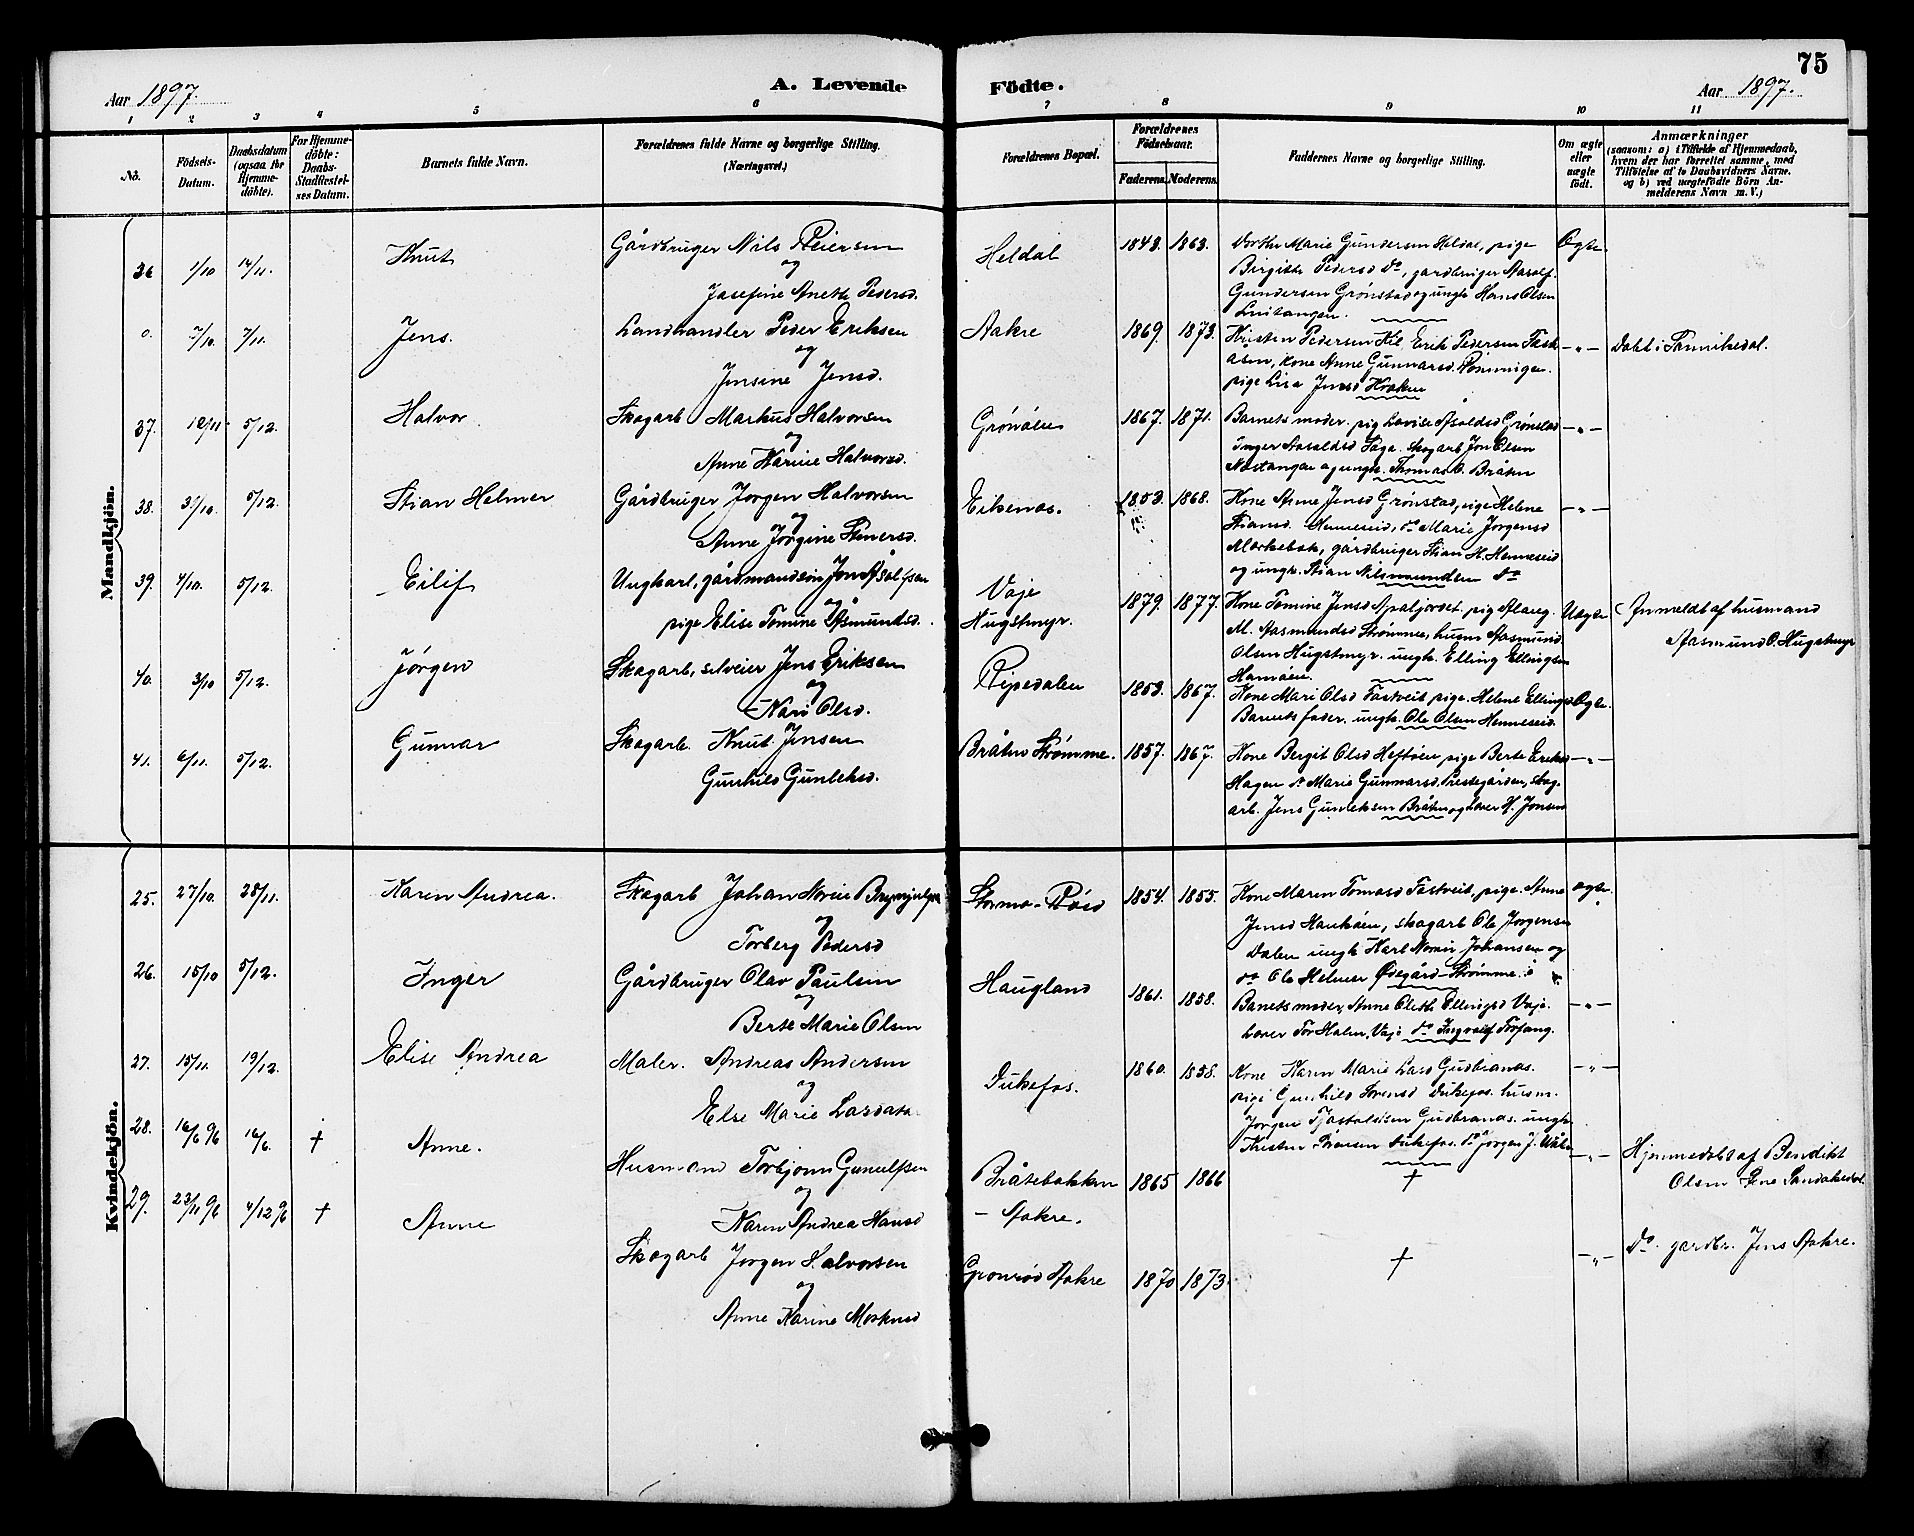 75
Aar 1897.
A. Levende Födte.
Aar 1897.
1 2 3 4 5 6 7 8 9 10 11
No.
Födsels-Datum.
Daabsdatum (ogsaa for Hjemme-döbte).
For Hjemme-döbte: Daabs-Stadfæstel-ses Datum.
Barnets fulde Navn.
Forældrenes fulde Navne og borgerlige Stilling.
(Næringsvei.)
Forældrenes Bopæl.
Forældrenes Födselsaar.
Faderens. Moderens.
Faddernes Navne og borgerlige Stilling.
Om ægte eller uægte födt.
Anmærkninger
(saasom: a) i Tilfælde af Hjemmedaab,
hvem der har forrettet samme, med
Tilföielse af to Daabsvidners Navne.
og b) ved uægtefödte Börn An-
melderens Navn m. V.)
Mandkjön.
36 1/10 14/11. Knut
Gårdbruger Nils Reiersen
og
Josefine Anette Pedersd.
Heldal 1843. 1863.
Dorthe Marie Gundersen Heldal, pige
Birgitte Pedersd do, gardbruger Aasolf
Gundersen Grønstad og ungk Hans Olsen
Ægte
0. 7/10. 7/11. Jens.
Landhandler Peder Eriksen
og
Jensine Jensd.
Aakre 1869. 1873.
Kristen Pedersen Kil Erik Pedersen Fast
åsen, kone Anne Gunnarsd. Rønningen.
pige Lisa Jensd
-"- Døbt i Sannikedal.
37. 12/11 5/12. Halvor
Skogarb Markus Halvorsen
og
Anne Karine Halvorsd.
Grønåsen 1867. 1871.
Barnets moder. pig Lovise Åsoldsd Grønstad
Inger Aasoldsd Saga. skogarb Jon Olsen
og ungk. Thomas O. Bråten
-"-
38. 5/12. Stian Helmer
Gårdbruger Jørgen Halvorsen
og
Anne Jørgine Steinersd.
Eikenes. 1853. 1868.
Kone Anne Jensd Grønstad, pige Helene
Stiansd. Henneseid, do Marie Jørgensd
Mørkebek, gårdbruger Stian H. Henneseid
og ungk. Stian do
-"-
39. 4/10. 5/12. Eilif
Ungkarl, gårdmandsøn Jon Åsolfsen
og
pige Elise Tomine Åsmundsd.
Vaje
Hugstmyr. 1879. 1877.
Kone Tomine Jensd Apaljordet. pig Aslaug
M. Aasmundsd Strømme, husm Aasmund
Olsen Hugstmyr. ungk. Elling Ellingsen
Uægte
Anmeldt af husmand
Aasmund O. Hugstmyr
40. 3/10 5/12. Jørgen
Skogarb, selveier Jens Eriksen
og
Kari Olsd.
Ripedalen 1853. 1867.
Kone Mari Olsd Fastveit pige. Helene Ellingsd
Barnets fader. ungk. Ole Olsen Henneseid.
Ægte.
41. 6/11. 5/12. Gunnar
Skogarb. Knut Jensen
Gunhild Gunleksd.
Bråten Strømme. 1857. 1867.
Kone Bergit Olsd Heftøien pige Berte Eriksd
Hagen do Marie Gunnarsd. Prestegården, skog-
arb. Jens Gunleksen Bråten og lærer H. Jonsen
-"-
Kvindekjön.
25. 27/10. 28/11. Karen Andrea.
Skogarb Johan
og
Torberg Pedersd
1854. 1855.
Kone Maren Tomasd Fastveit, pige. Anne
Jensd Haukåen, skogarb Ole Jørgensen
Dalen ungk Karl Johansen og
do Ole Helmer Ødegård-Strømme.
ægte.
26. 15/10 5/12. Inger
Gårdbruger Olav Paulsen
og
Berte Marie Olsen
Haugland 1861. 1858.
Barnets moder, Anne Oleth Ellingsd Vaje.
lærer Tor Halen, Vaje do Ingvald Torfang.
-"-
27. 15/11. 19/12. Elise Andrea
Maler. Andreas Andersen
og
Else Marie Larsdatr
Dukefos. 1860. 1858.
Kone Karen Marie Larsd Gudbrands.
pige Gunhild Sørensd Dukefos. husm.
Jørgen Tjøstolvsen Gudbrands. ungk
Kristen Dukefos. do Jørgen J.
-"-
28. 16/6 96 16/6. † Anne.
Husmand Torbjørn Gunulfsen
og
Karen Andrea Hansd
Bråtebakken
- Aakre. 1865 1866
†
-"-
Hjemmedøbt af Bendikt
Olsen Sandakedal
29. 23/11 96 4/12 96 † Anne
Skogarb Jørgen Halvorsen
og
Anne Karine
Grønrød Aakre 1870 1873.
†
-"-
Do. gardbr. Jens Aakre.